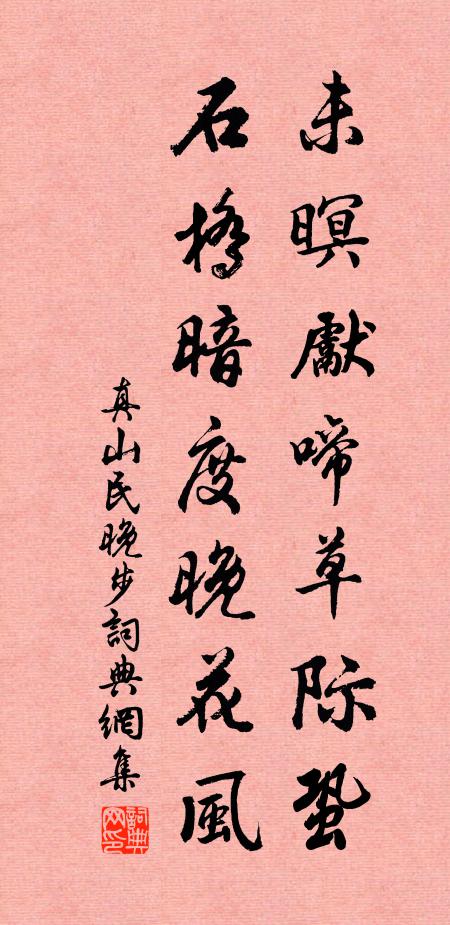 未暝獻啼草际蛩
石橋暗度晚花風
真山民晚步詞典網集
詞典网印